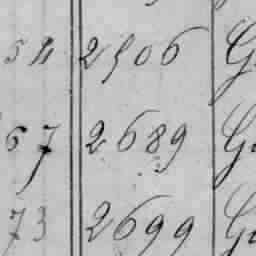 54 2506 G
67 2689 G
73 2699 G